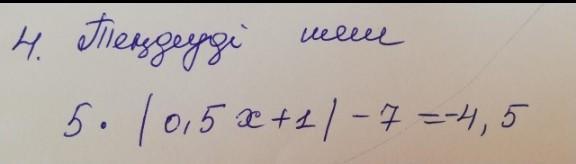 4. Теңдеуді шеш
5 · | 0,5 x + 1 | - 7 = -4, 5